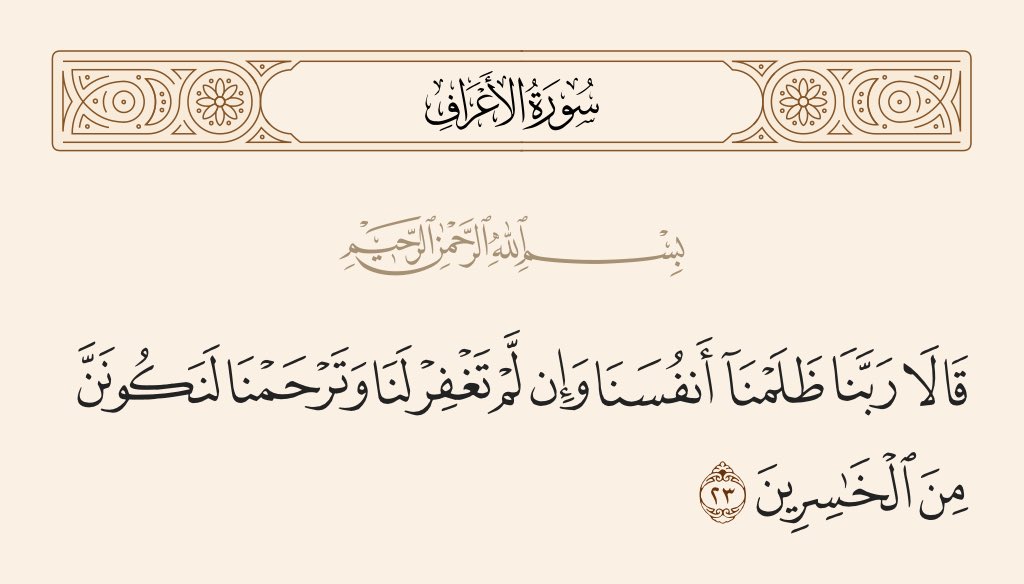 سُورَةُ الأَعْرَافِ
بِسْمِ ٱللَّهِ ٱلرَّحْمَٰنِ ٱلرَّحِيمِ
قَالَا رَبَّنَا ظَلَمْنَآ أَنفُسَنَا وَإِن لَّمْ تَغْفِرْ لَنَا وَتَرْحَمْنَا لَنَكُونَنَّ
مِنَ ٱلْخَٰسِرِينَ ٢٣